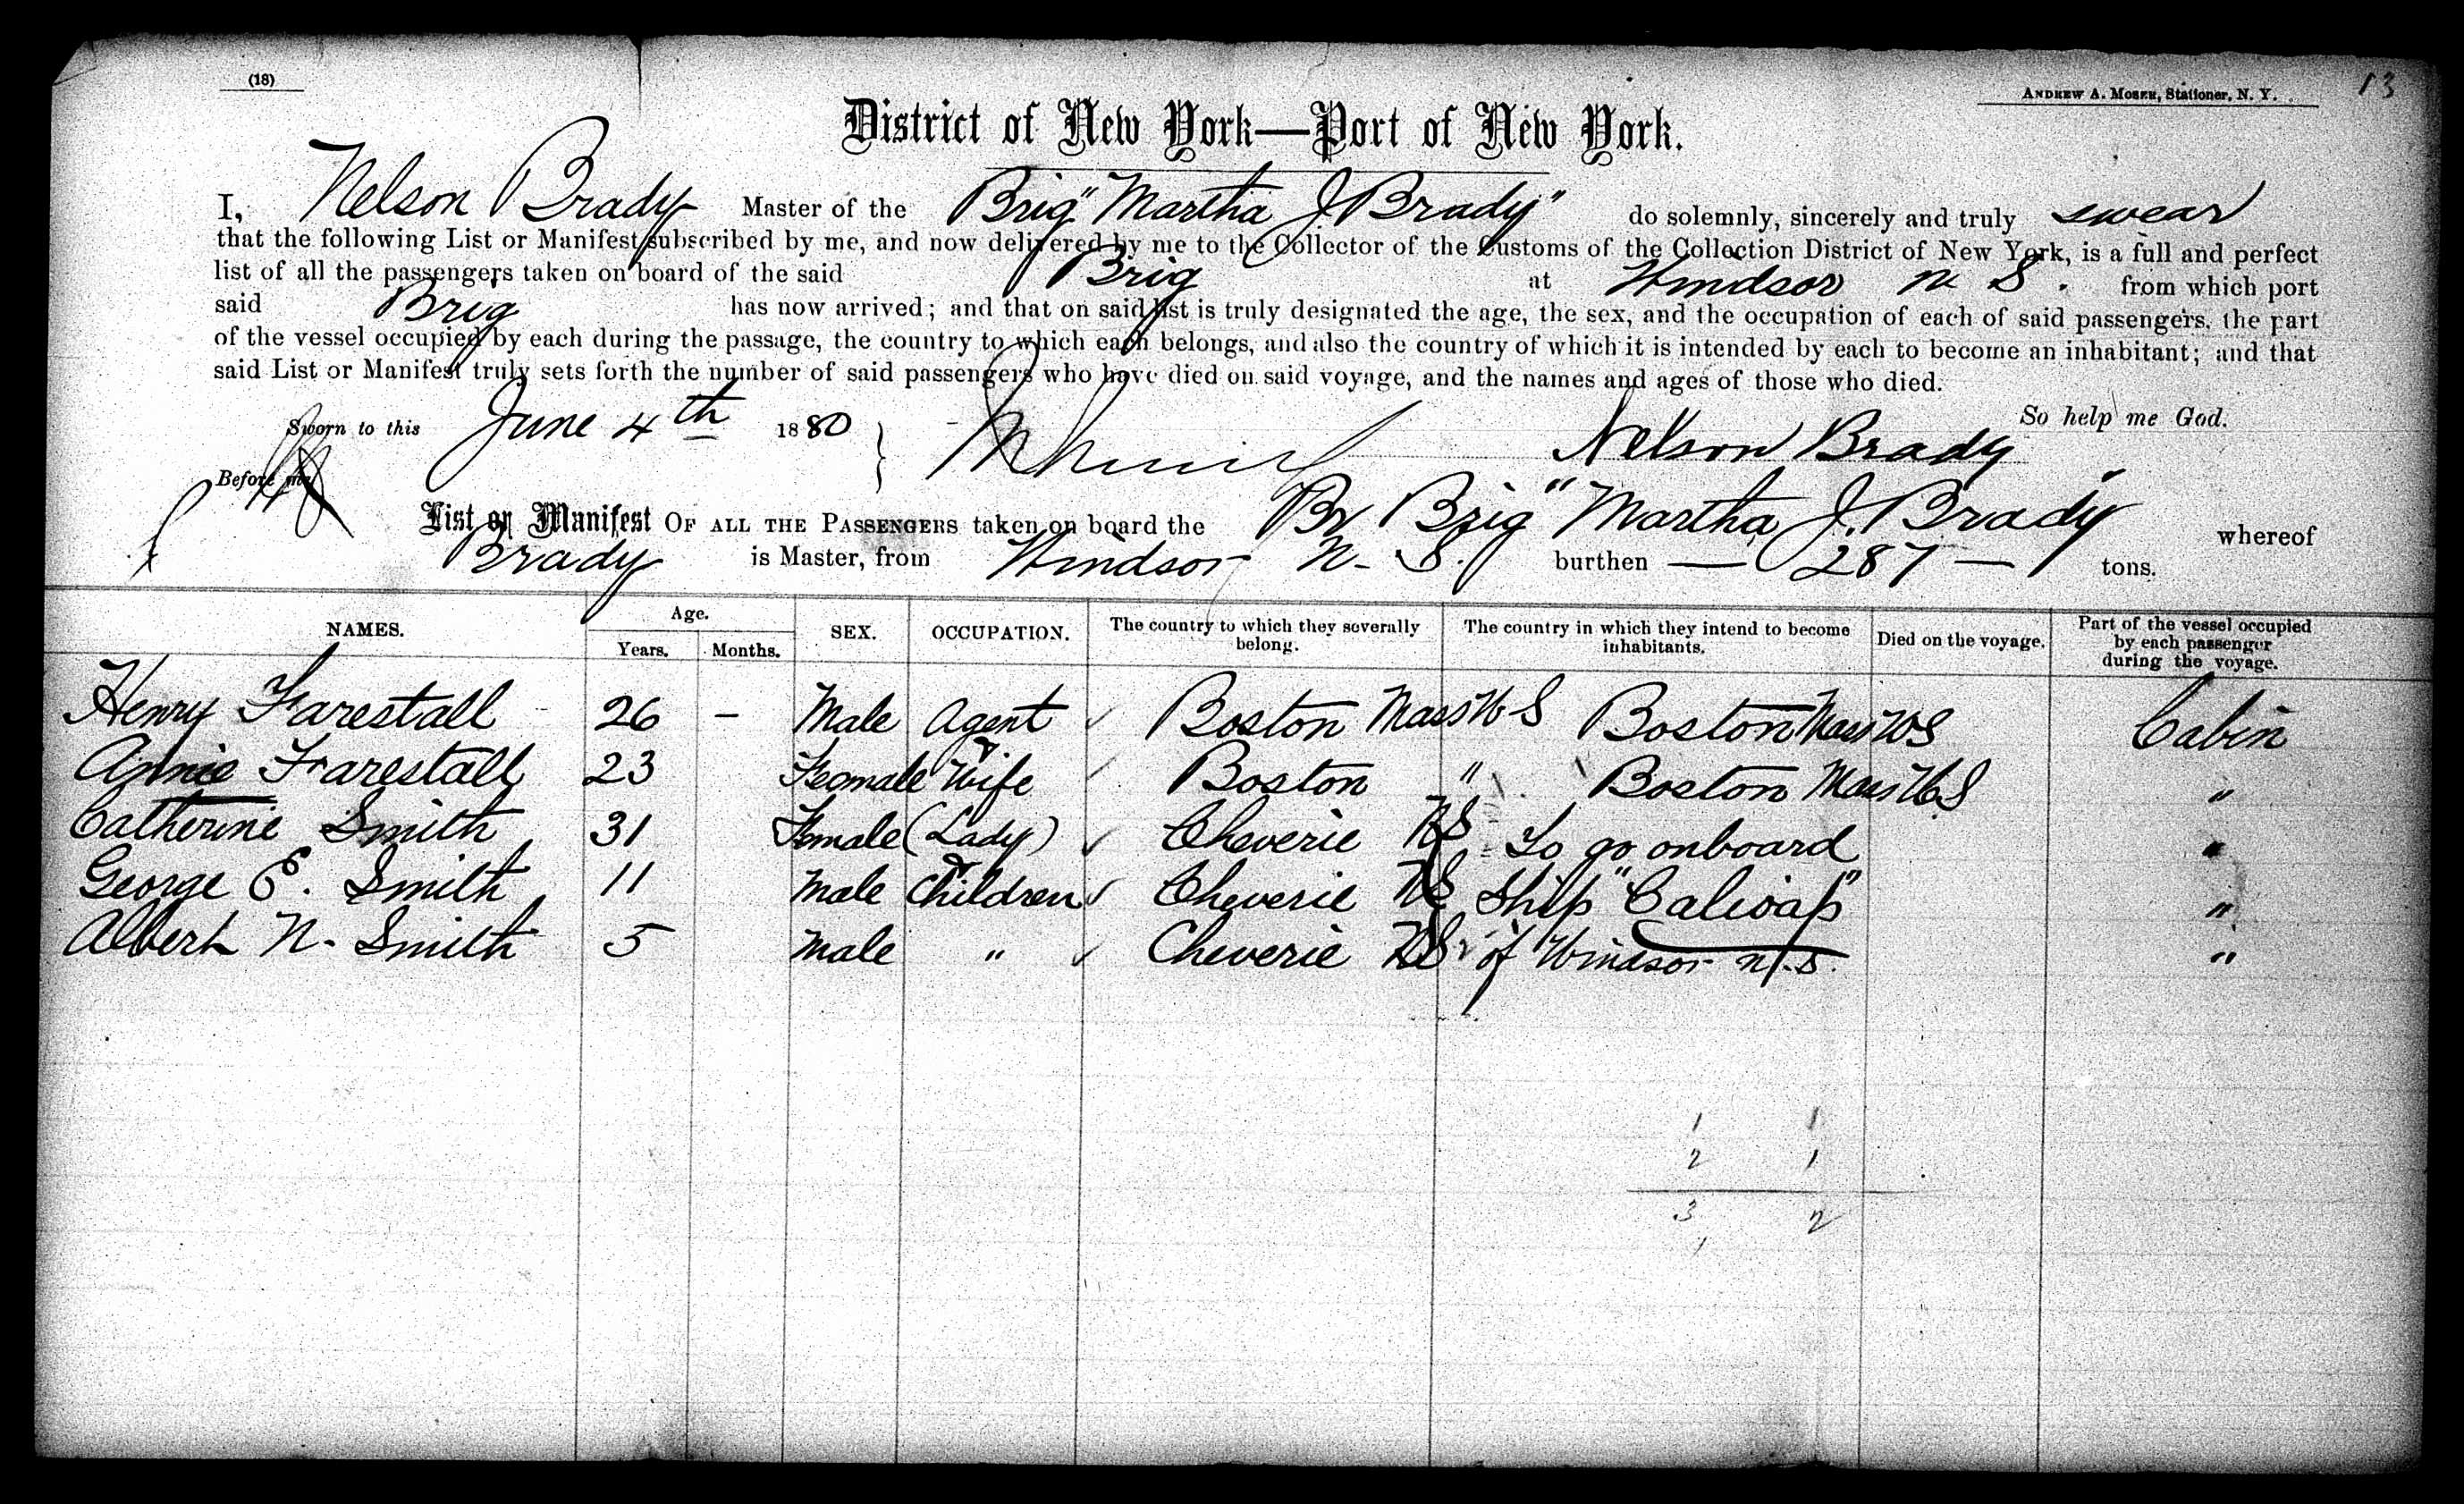 (18)
ANDREW A. MOSER, Stationer, N. Y.
13
District of New York—Port of New York.
I, Nelson Brady Master of the Brig "Martha J Brady" do solemnly, sincerely and truly swear
that the following List or Manifest subscribed by me, and now delivered by me to the Collector of the Customs of the Collection District of New York, is a full and perfect
list of all the passengers taken on board of the said Brig at Windsor N S. from which port
said Brig has now arrived; and that on said list is truly designated the age, the sex, and the occupation of each of said passengers, the part
of the vessel occupied by each during the passage, the country to which each belongs, and also the country of which it is intended by each to become an inhabitant; and that
said List or Manifest truly sets forth the number of said passengers who have died on said voyage, and the names and ages of those who died.
So help me God.
Sworn to this June 4th 1880
Nelson Brady
Before me
List or Manifest OF ALL THE PASSENGERS taken on board the Br Brig "Martha J. Brady" whereof
Brady is Master, from Windsor N. S. burthen — 287 — tons.
NAMES. Age. Years. Months. SEX. OCCUPATION. The country to which they severally belong. The country in which they intend to become inhabitants. Died on the voyage. Part of the vessel occupied by each passenger during the voyage.
Henry Farestall 26 — Male Agent Boston Mass U S Boston Mass U S Cabin
Annie Farestall 23 Female Wife Boston " Boston Mass U S "
Catherine Smith 31 Female (Lady) Cheverie NS To go onboard "
George E. Smith 11 Male Children Cheverie NS Ship "Calioap" "
Albert N. Smith 5 Male " Cheverie NS of Windsor N.S. "
1 1
2 1
3 2